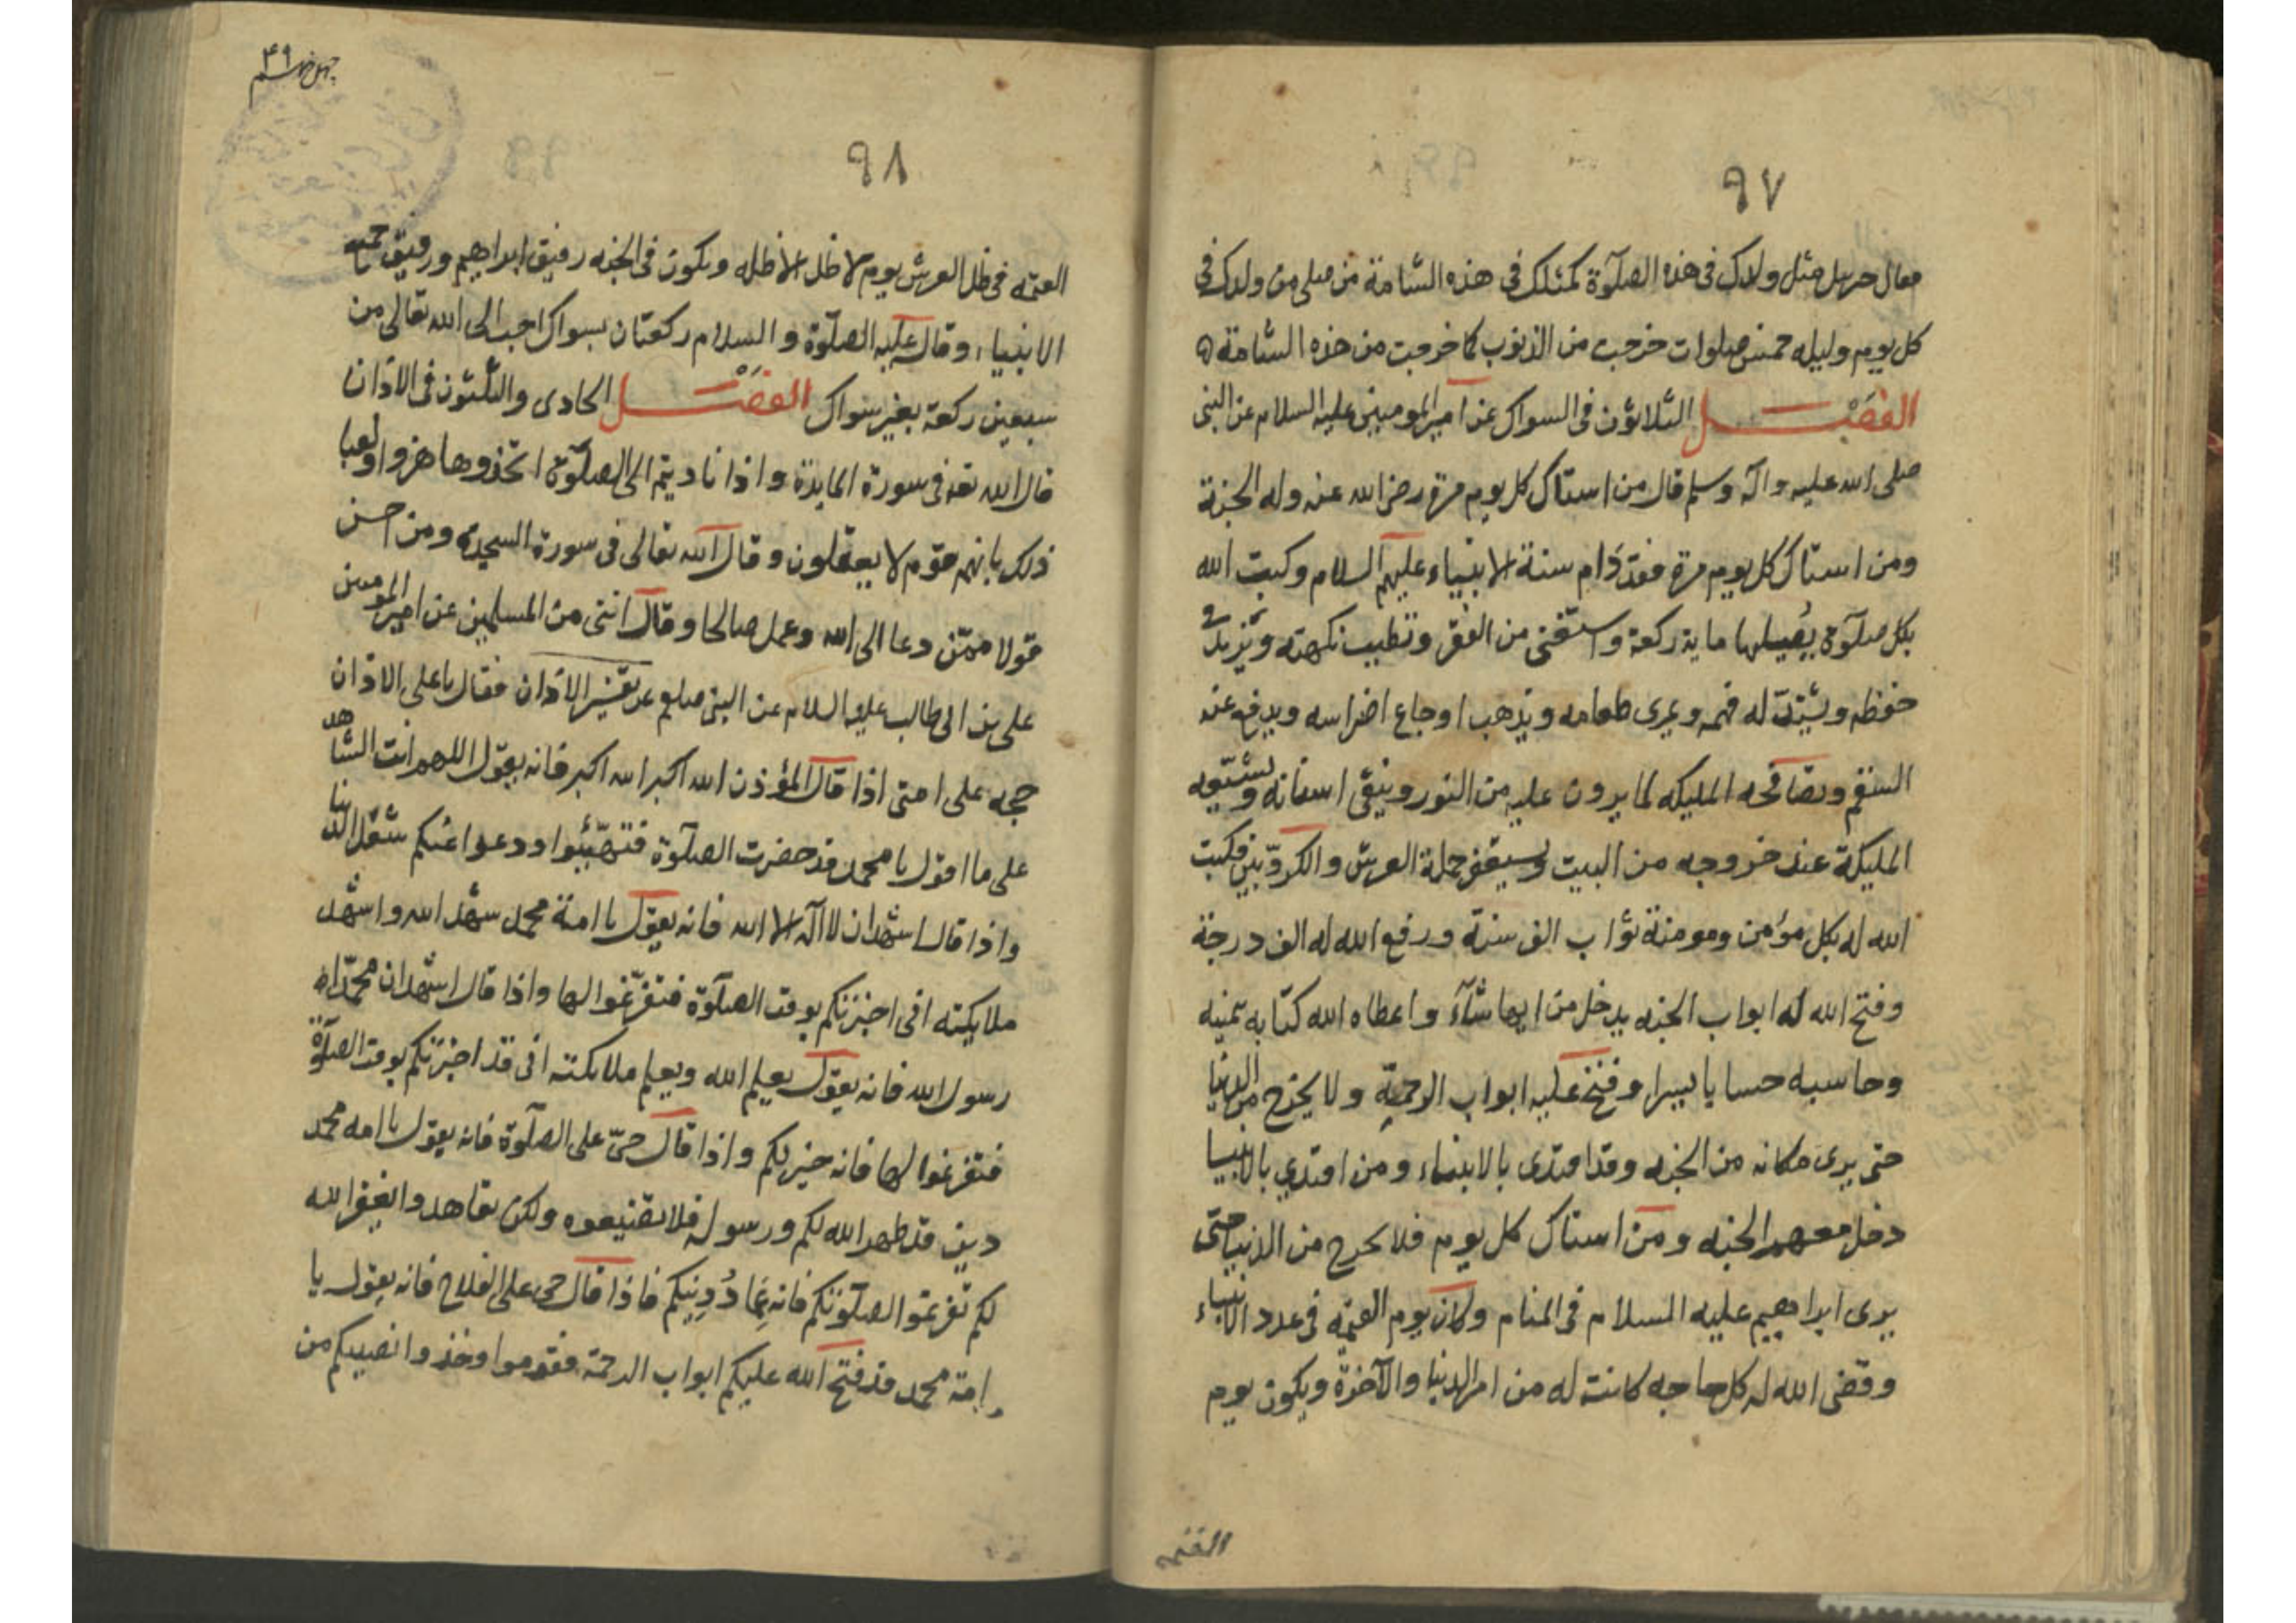 ٩٧
فقال جبريل مثل ولدك فى هذه الصلوة كمثلك فى هذه الشامة من صلى من ولدك فى
كل يوم وليله خمس صلوات خرجت من الذنوب كما خرجت من هذه الشامة
الفصل الثلاثون فى السواك عن امير المومنين عليه السلام عن النبى
صلى الله عليه وآله وسلم قال من استاك كل يوم مرة رضى الله عنه وله الجنة
ومن استاك كل يوم مرة فقد دام سنة الانبياء عليهم السلام وكتب الله
بكل صلوة يصليها ماية ركعة واستغنى من الفقر وتطيب نكهته ويزيد فى
حفظه ويشتد له فهمه ويمرى طعامه ويذهب اوجاع اضراسه ويدفع عنه
السقم وتصافحه المليكه لما يرون عليه من النور وينقى اسنانه وتشيعه
المليكة عند خروجه من البيت ويستغفر حملة العرش والكروبين فكتب
الله له بكل مؤمن ومومنة ثواب الف سنة ورفع الله له الف درجة
وفتح الله له ابواب الجنه يدخل من ايها شآء واعطاه الله كتابه بيمنيه
وحاسبه حسابا يسيرا وفتح عليه ابواب الرحمة ولا يخرج من الدنيا
حتى يرى مكانه من الجنه وقد اقتدى بالانبياء ومن اقتدي بالانبيا
دخل معهم الجنه ومن استاك كل يوم فلا يخرج من الدنيا حتى
يرى ابراهيم عليه السلام فى المنام وكان يوم القيمه فى عدد الانبياء
وقضى الله له كل حاجه كانت له من امر الدنيا والآخرة ويكون يوم
القيمه
٤٩
٩٨
القيمه فى ظل العرش يوم لا ظل الا ظله ويكون فى الجنه رفيق ابراهيم ورفيق جميع
الانبياء وقال عليه الصلوة والسلام ركعتان بسواك احب الى الله تعالى من
سبعين ركعة بغير سواك الفصل الحادى والثلثون فى الاذان
قال الله تعه فى سورة المايدة واذا ناديتم الى الصلوة اتخذوها هزوا ولعبا
ذلك بانهم قوم لا يعقلون وقال الله تعالى فى سورة السجده ومن احسن
قولا ممّن دعا الى الله وعمل صالحا وقال اننى من المسلمين عن امير المومنين
على بن ابى طالب عليه السلام عن النبى صلعم عن تفسير الاذان فقال يا على الاذان
حجه على امتى اذا قال المؤذن الله اكبر الله اكبر فانه يقول اللهم انت الشاهد
على ما اقول يا محمد قد حضرت الصلوة فتهيّئوا ودعوا عنكم شغل الدنيا
واذا قال اشهد ان لا اله الا الله فانه يقول يا امة محمد اشهد الله واشهد
ملايكته انى اخبرتكم بوقت الصلوة فتفرّغوا لها واذا قال اشهد ان محمدا
رسول الله فانه يقول يعلم الله ويعلم ملايكته انى قد اخبرتكم بوقت الصلوة
فتفرغوا لها فانه خير لكم واذا قال حىّ على الصلوة فانه يقول يا امه محمد
دين قد اظهر الله لكم ورسوله فلا تضيعوه ولكن تعاهدوا يغفر الله
لكم تفرغوا لصلوتكم فانه عماد دينكم فاذا قال حى على الفلاح فانه يقول يا
امة محمد قد فتح الله عليكم ابواب الرحمة فقوموا وخذوا نصيبكم من